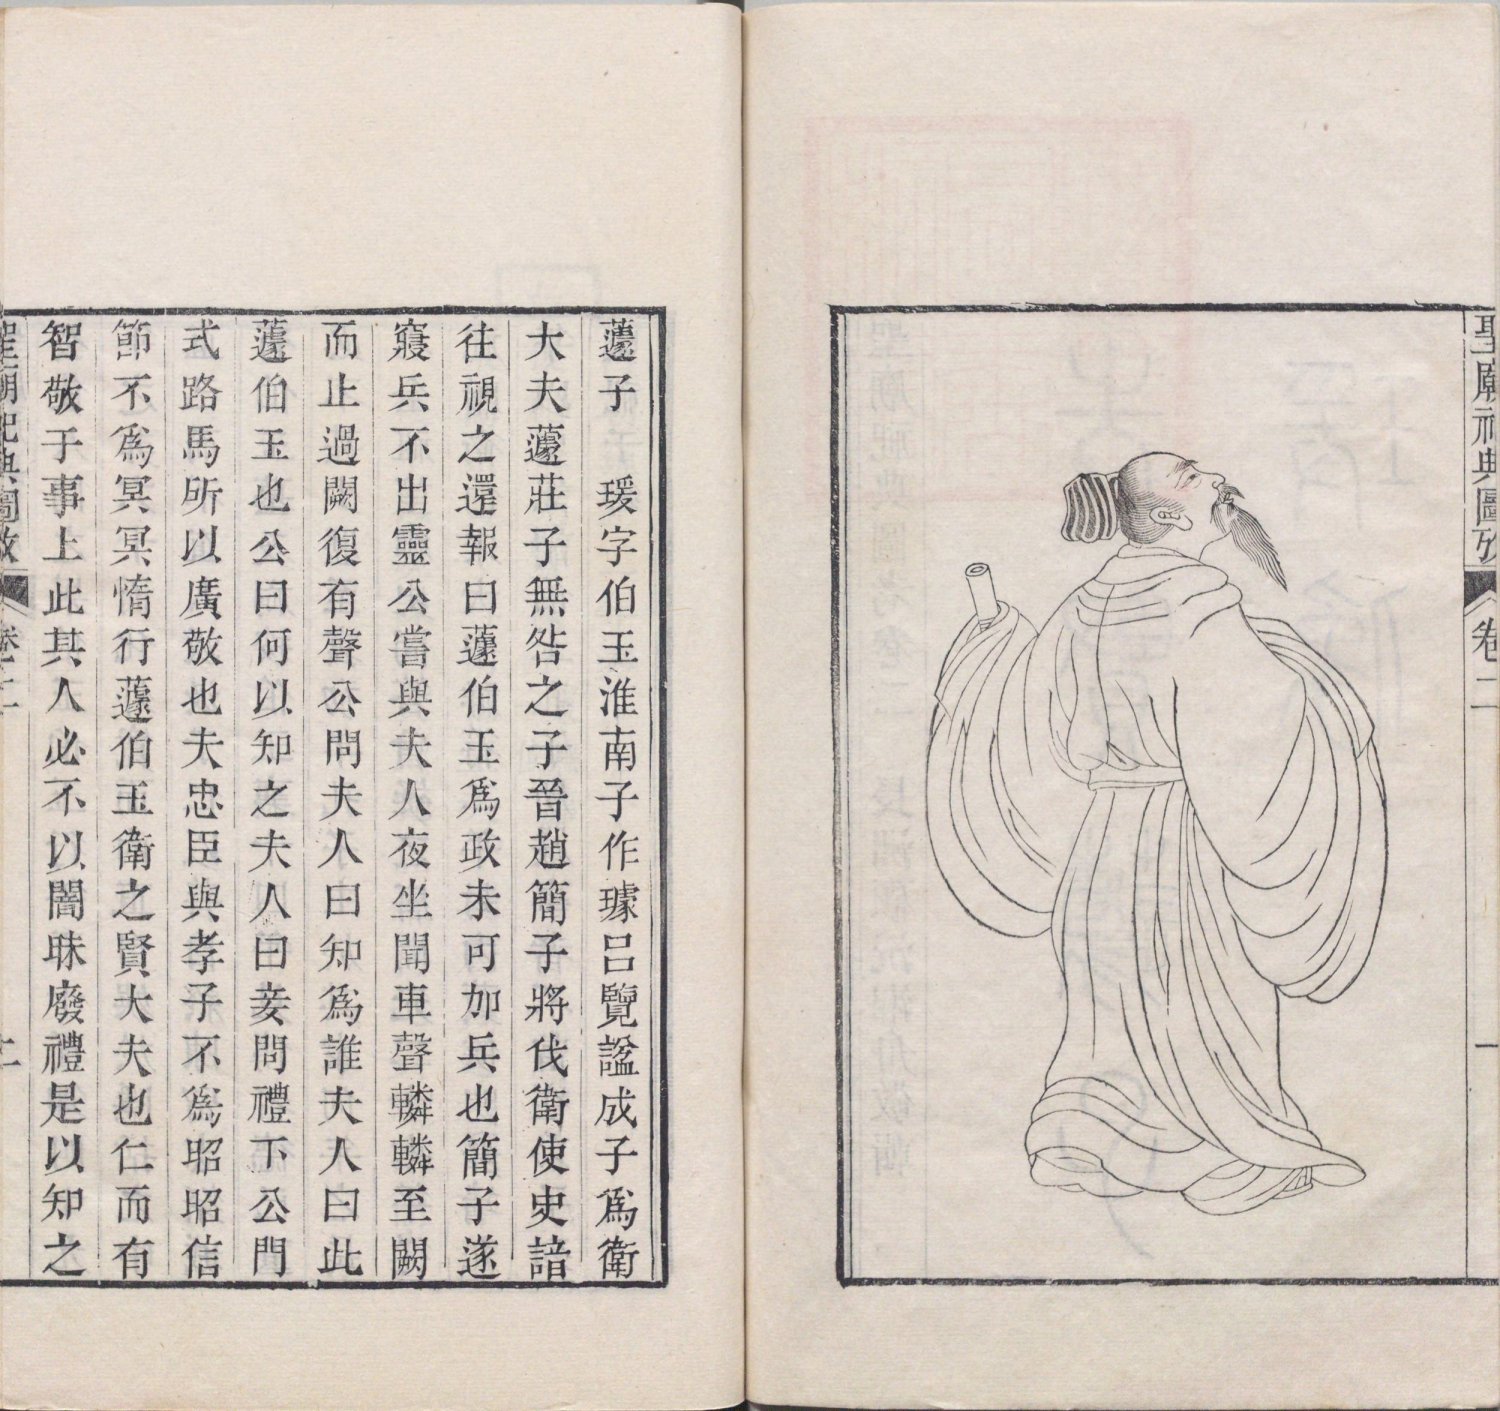 聖廟祀典圖攷
卷二
一
蘧子　瑗字伯玉淮南子作璩呂覽諡成子爲衛
大夫蘧莊子無咎之子晉趙簡子將伐衛使史諳
往視之還報曰蘧伯玉爲政未可加兵也簡子遂
寢兵不出靈公嘗與夫人夜坐聞車聲轔轔至闕
而止過闕復有聲公問夫人曰知爲誰夫人曰此
蘧伯玉也公曰何以知之夫人曰妾問禮下公門
式路馬所以廣敬也夫忠臣與孝子不爲昭昭信
節不爲冥冥惰行蘧伯玉衛之賢大夫也仁而有
智敬于事上此其人必不以闇昧廢禮是以知之
聖廟祀典圖攷
卷二
二